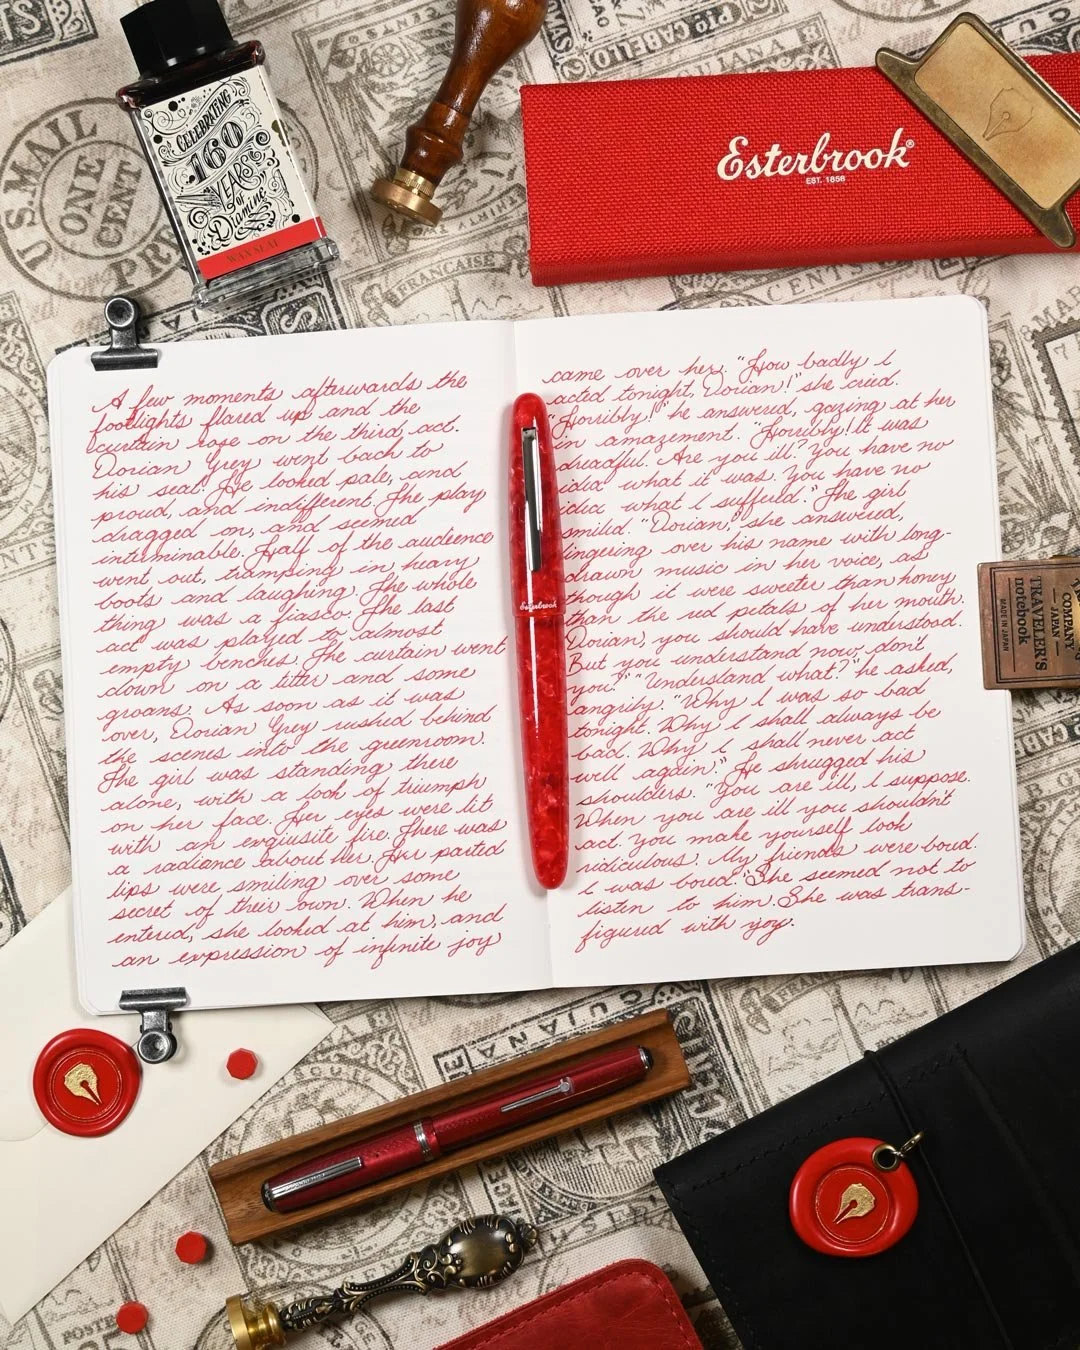 CELEBRATING
160
YEARS
OF
Diamine
WAX SEAL
Esterbrook®
EST. 1858
U.S. MAIL
ONE
CENT
Pto CABELLO
FRANCAISE
A few moments afterwards the
footlights flared up and the
curtain rose on the third act.
Dorian Grey went back to
his seat. He looked pale, and
proud, and indifferent. The play
dragged on, and seemed
interminable. Half of the audience
went out, tramping in heavy
boots and laughing. The whole
thing was a fiasco. The last
act was played to almost
empty benches. The curtain went
down on a titter and some
groans. As soon as it was
over, Dorian Grey rushed behind
the scenes into the greenroom.
The girl was standing there
alone, with a look of triumph
on her face. Her eyes were lit
with an exquisite fire. There was
a radiance about her. Her parted
lips were smiling over some
secret of their own. When he
entered, she looked at him, and
an expression of infinite joy
came over her. "How badly I
acted tonight, Dorian!" she cried.
"Horribly!" he answered, gazing at her
in amazement. "Horribly! It was
dreadful. Are you ill? You have no
idea what it was. You have no
idea what I suffered." The girl
smiled. "Dorian," she answered,
lingering over his name with long-
drawn music in her voice, as
though it were sweeter than honey
than the red petals of her mouth.
Dorian, you should have understood.
But you understand now, don't
you?" "Understand what?" he asked,
angrily. "Why I was so bad
tonight. Why I shall always be
bad. Why I shall never act
well again." He shrugged his
shoulders. "You are ill, I suppose.
When you are ill you shouldn't
act. You make yourself look
ridiculous. My friends were bored.
I was bored." She seemed not to
listen to him. She was trans-
figured with joy.
Esterbrook
COMPANY
JAPAN
TRAVELER'S
notebook
MADE IN JAPAN